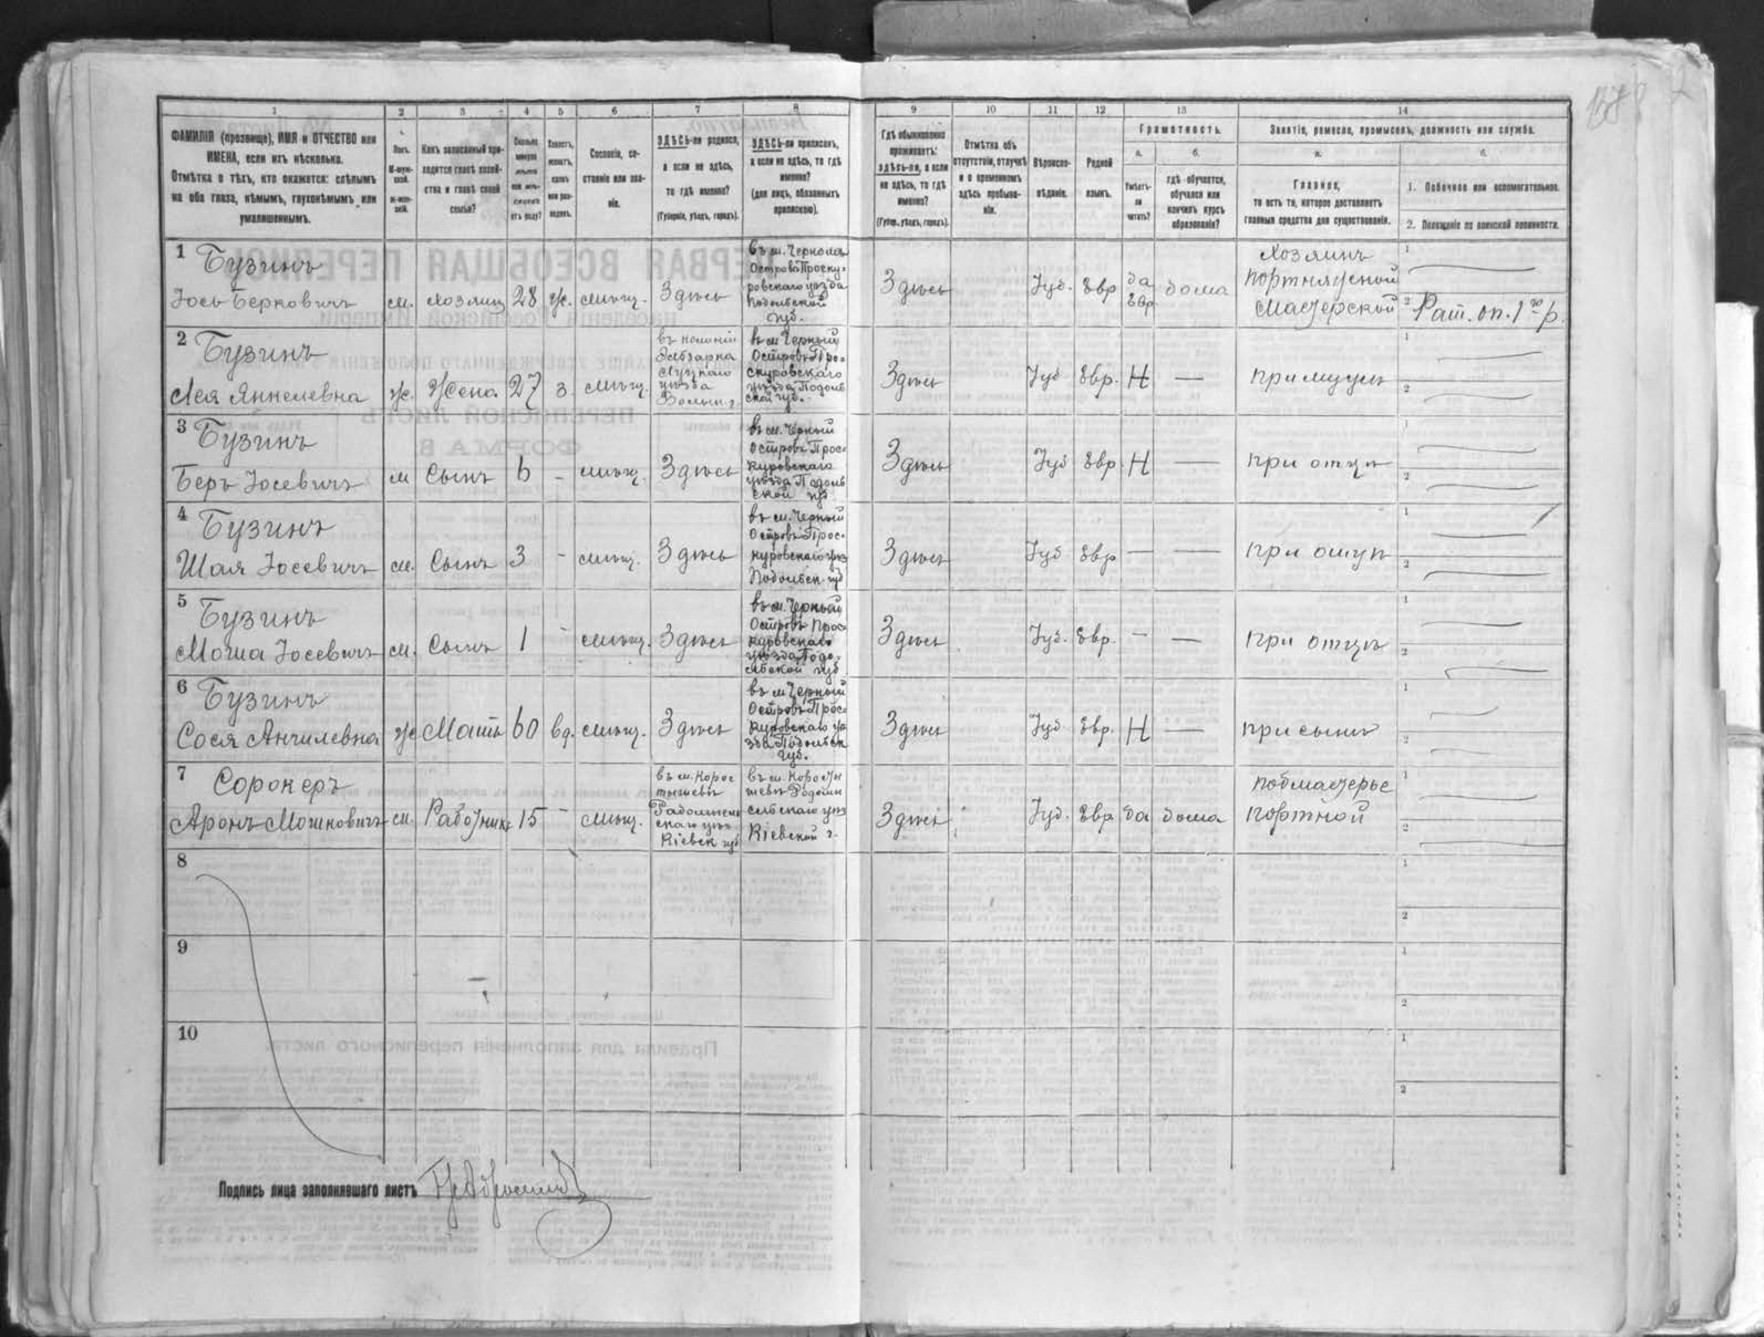 1 2 3 4 5 6 7 8 9 10 11 12 13 14
ФАМИЛІЯ (прозвище), ИМЯ и ОТЧЕСТВО или
ИМЕНА, если ихъ нѣсколько.
Отмѣтка о тѣхъ, кто окажется: слѣпымъ
на оба глаза, нѣмымъ, глухонѣмымъ или
умалишеннымъ.
Полъ.
М-муж-
ской.
ж-жен-
скій.
Какъ записанный при-
ходится главѣ хозяй-
ства и главѣ своей
семьи?
Сколько
минуло
лѣтъ
или мѣ-
сяцевъ
отъ роду?
Холостъ,
женатъ,
вдовъ
или раз-
веденъ.
Сословіе, со-
стояніе или зва-
ніе.
ЗДѢСЬ-ли родился,
а если не здѣсь,
то гдѣ именно?
(Губернія, уѣздъ, городъ).
ЗДѢСЬ-ли приписанъ,
а если не здѣсь, то гдѣ
именно?
(для лицъ, обязанныхъ
припискою).
Гдѣ обыкновенно
проживаетъ:
здѣсь-ли, а если
не здѣсь, то гдѣ
именно?
(Губер., уѣздъ, городъ).
Отмѣтка объ
отсутствіи, отлучкѣ
и о временномъ
здѣсь пребыва-
ніи.
Вѣроиспо-
вѣданіе.
Родной
языкъ.
Грамотность.
а.
Умѣетъ-
ли
читать?
б.
гдѣ обучается,
обучался или
кончилъ курсъ
образованія?
Занятіе, ремесло, промыселъ, должность или служба.
а.
Главное,
то есть то, которое доставляетъ
главныя средства для существованія.
б.
1. Побочное или вспомогательное.
2. Положеніе по воинской повинности.
1 Бузинъ
Іось Берковичъ м. хозяинъ 28 ж. мѣщ. Здѣсь
въ м. Черномъ
Островѣ Проску-
ровскаго уѣзда
Подольской
губ.
Здѣсь Іуд. Евр да
Евр дома
Хозяинъ
портняжной
мастерской
1
2 Рат. оп. 1го р.
2 Бузинъ
Лея Янкелевна ж. Жена 27 з. мѣщ.
въ колоніи
Луцкаго
уѣзда
Волын. г.
въ м. Черный
Островъ Про-
скуровскаго
уѣзда Подоль
ской губ.
Здѣсь Іуд Евр. Н — при мужѣ
1
2
3 Бузинъ
Беръ Іосевичъ м Сынъ 6 - мѣщ. Здѣсь
въ м. Черный
Островъ Прос-
куровскаго
уѣзда Подоль
ской губ
Здѣсь Іуд Евр. Н — при отцѣ
1
2
4 Бузинъ
Шая Іосевичъ м. Сынъ 3 - мѣщ. Здѣсь
въ м. Черный
Островъ Прос-
куровскаго уѣз
Подольск. губ
Здѣсь Іуд Евр — — при отцѣ
1
2
5 Бузинъ
Моша Іосевичъ м. Сынъ 1 - мѣщ. Здѣсь
въ м. Черный
Островъ Прос-
куровскаго
уѣзда Подо-
льской губ
Здѣсь Іуд. Евр. — — при отцѣ
1
2
6 Бузинъ
Сося Анчилевна ж Мать 60 вд. мѣщ. Здѣсь
въ м Черный
Островъ Прос-
куровскаго уѣ
зда Подольск
губ.
Здѣсь Іуд Евр. Н — при сынѣ
1
2
7 Сорокеръ
Аронъ Мошковичъ м. Работникъ 15 - мѣщ.
въ м. Корос
тышевъ
Радомысль
скаго уѣз.
Кіевск губ
въ м. Коросты
шевъ Радомы
сльскаго уѣз
Кіевской г.
Здѣсь Іуд. Евр да дома
подмастерье
портной
1
2
8
1
2
9
1
2
10
1
2
Подпись лица заполнявшаго листъ